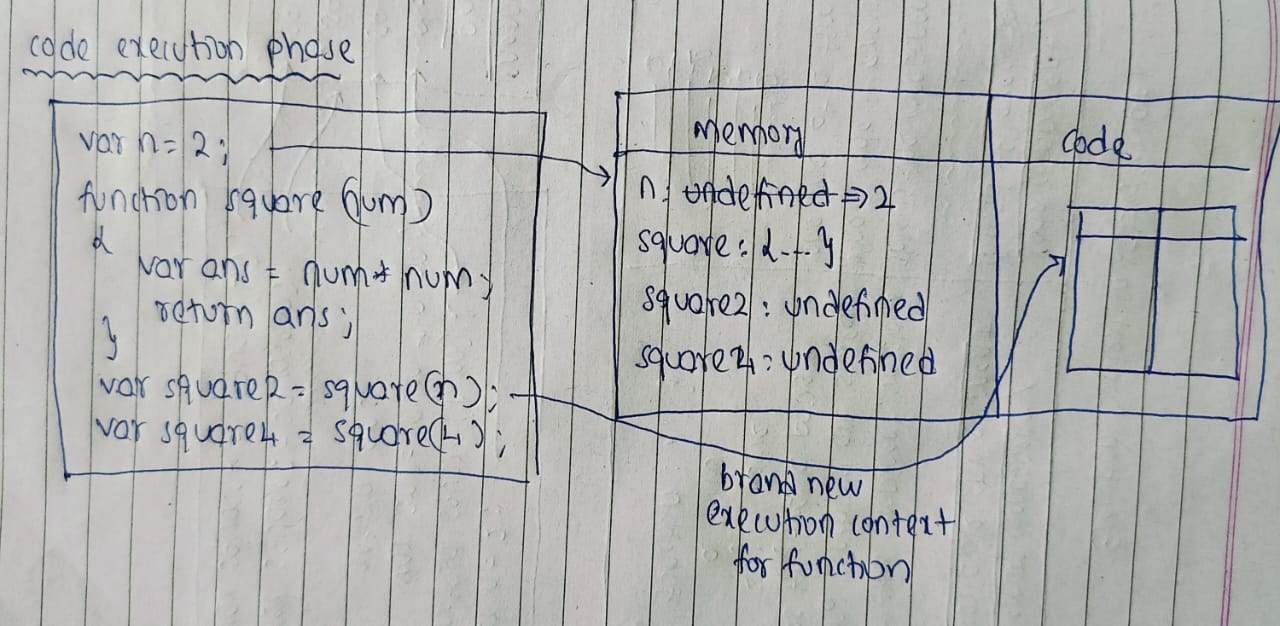 code execution phase
var n = 2;
function square (num)
{
var ans = num * num;
return ans;
}
var square2 = square(n);
var square4 = square(4);
Memory
n: undefined => 2
square: {...}
square2: undefined
square4: undefined
Code
brand new
execution context
for function